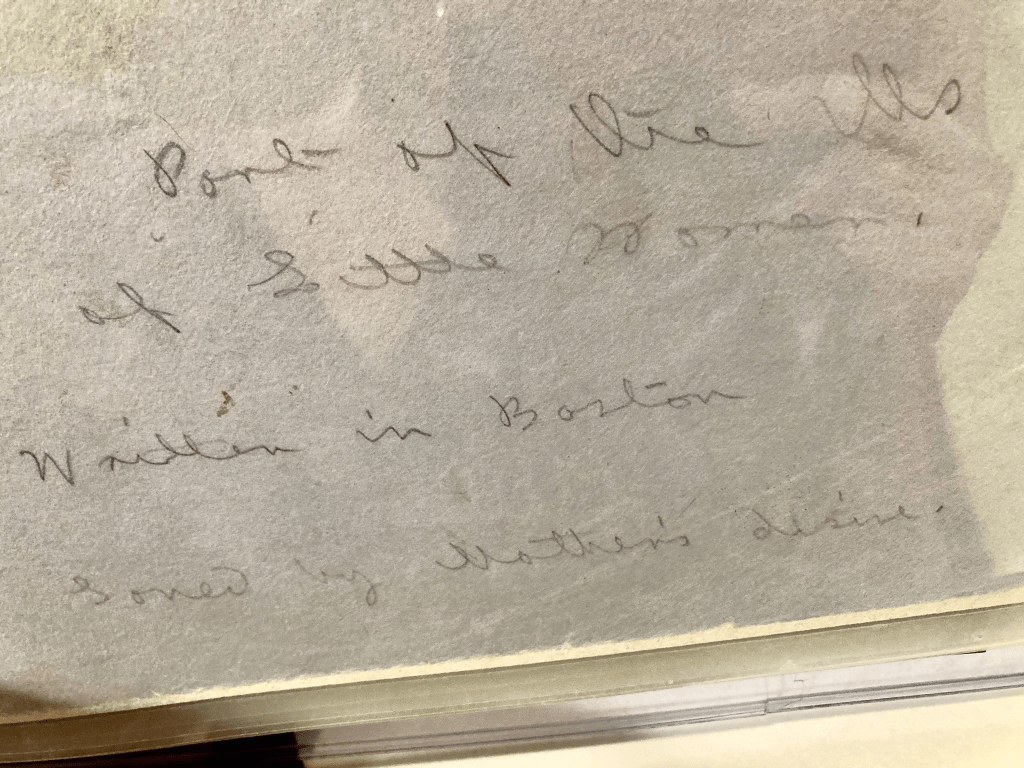 Part of the Ms
of Little Women.
Written in Boston
Saved by Mother's desire.